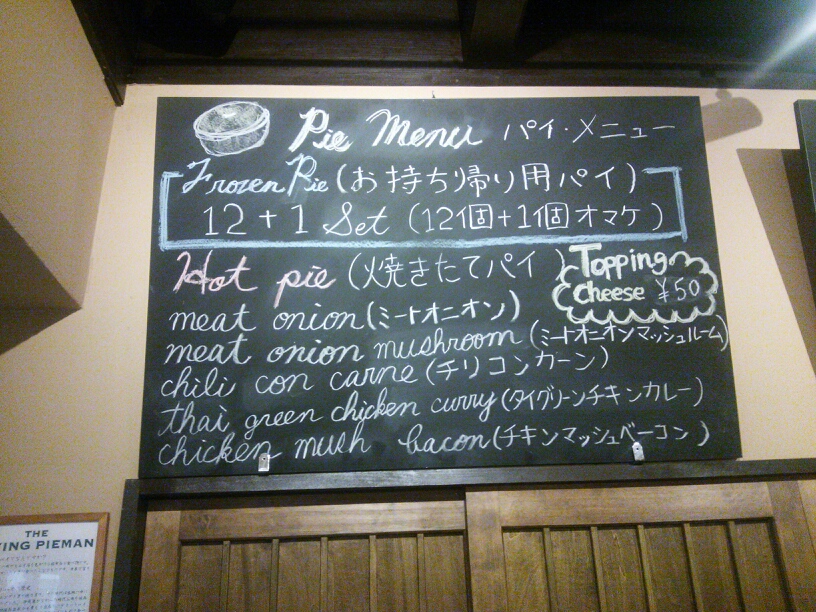 Pie Menu パイ・メニュー
Frozen Pie (お持ち帰り用パイ)
12 + 1 Set (12個+1個オマケ)
Hot pie (焼きたてパイ)
Topping
cheese ¥50
meat onion (ミートオニオン)
meat onion mushroom (ミートオニオンマッシュルーム)
chili con carne (チリコンカーン)
thai green chicken curry (タイグリーンチキンカレー)
chicken mush bacon (チキンマッシュベーコン)
THE
YING PIEMAN